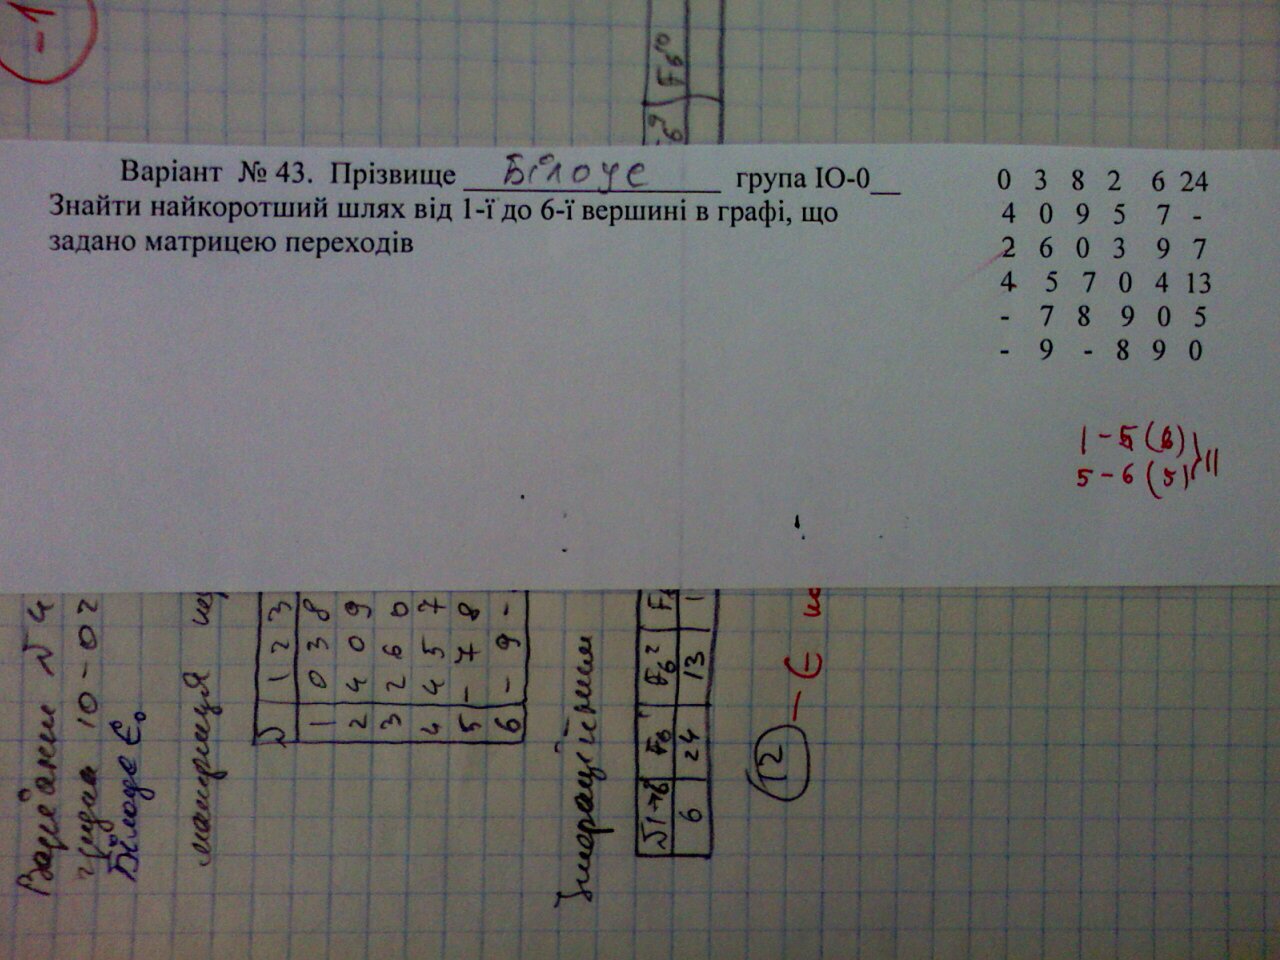 -1
F₆¹⁰
Варіант № 43. Прізвище Білоус група ІО-0__
Знайти найкоротший шлях від 1-ї до 6-ї вершині в графі, що
задано матрицею переходів
0 3 8 2 6 24
4 0 9 5 7 -
2 6 0 3 9 7
4 5 7 0 4 13
- 7 8 9 0 5
- 9 - 8 9 0
1-5 (6)
5-6 (5)
11
N 4
ІО-02
Білоус Є.
матриця
N 1 2 3
1 0 3 8
2 4 0 9
3 2 6 0
4 4 5 7
5 - 7 8
6 - 9 -
F₆¹ F₆²
6 24 13
12 - Є